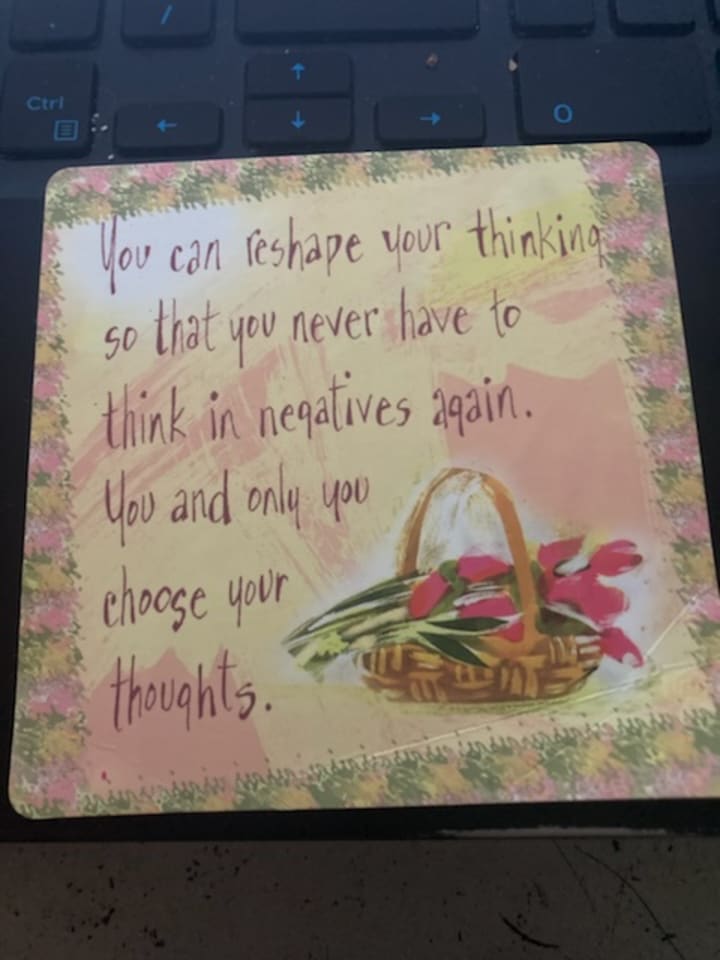 /
Ctrl
↑
← ↓ → 0
You can reshape your thinking
so that you never have to
think in negatives again.
You and only you
choose your
thoughts.